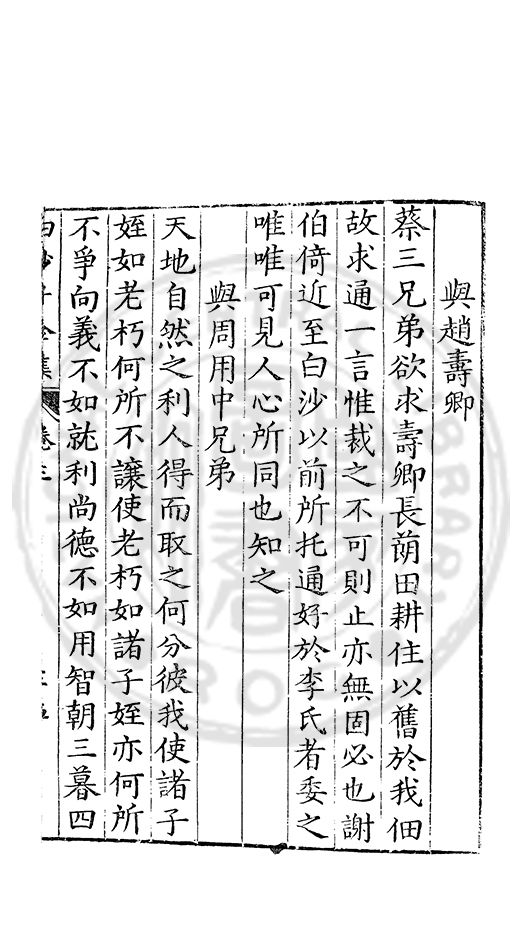 與趙壽卿
蔡三兄弟欲求壽卿長萠田耕住以舊於我佃
故求通一言惟裁之不可則止亦無固必也謝
伯倚近至白沙以前所托通好於李氏者委之
唯唯可見人心所同也知之
與周用中兄弟
天地自然之利人得而取之何分彼我使諸子
姪如老朽何所不讓使老朽如諸子姪亦何所
不爭向義不如就利尚德不如用智朝三暮四
白沙子全集
卷三